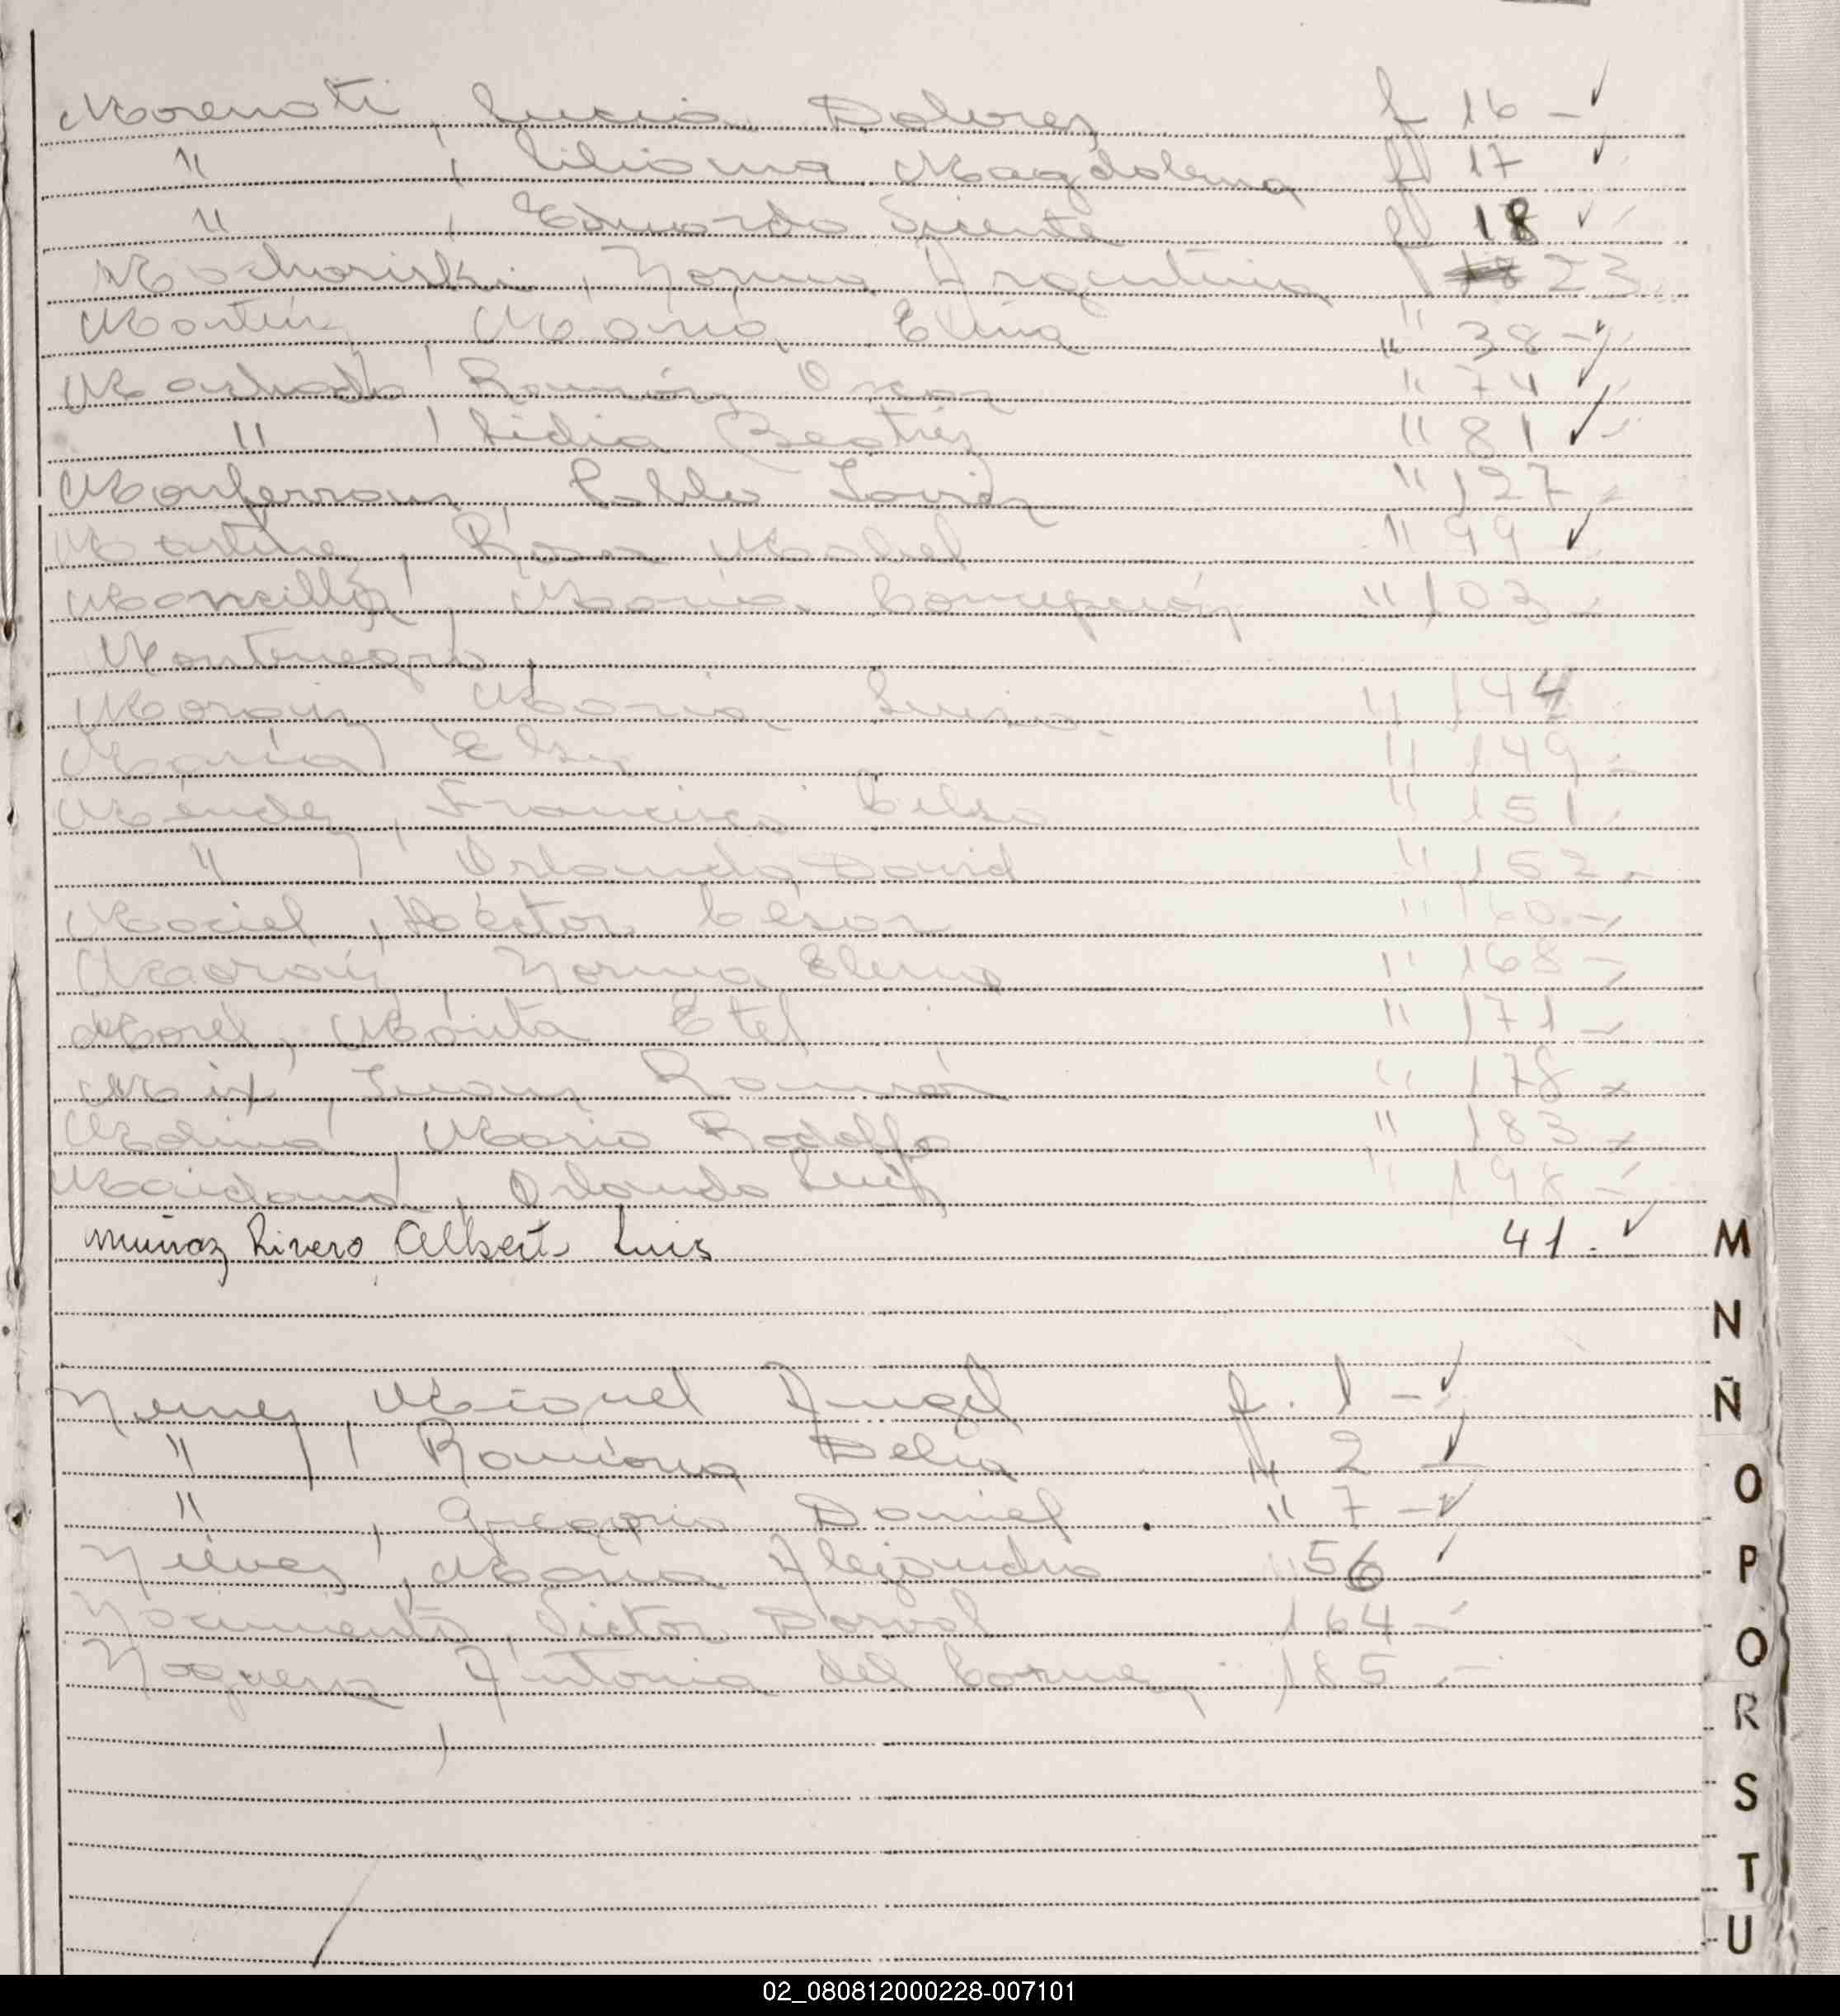 Morenati, Lucía Dolores f 16 -
" , Liliana Magdalena f 17
" , Eduardo Vicente f 18
Norma Argentina f 23
Martín, María Elina " 38 -
Machado, Ramón Oscar " 74
" , Lidia Beatriz " 81
Monferran, Pablo Javier " 127 -
Rosa Mabel " 99
Mancilla, María Concepción " 103 -
Montenegro,
Morain, María Luisa. " 144
María, Elsa " 149 -
Méndez, Francisco Celso " 151
" , Orlando David " 152 -
Maciel, Héctor César " 160 -
Norma Elena " 168 -
Morel, Marita Etel " 171 -
Mix, Juan Ramón " 178 -
Molina, Mario Rodolfo " 183 -
Maidana, Orlando Luis " 198 -
Muñoz Rivero, Alberto Luis 41 -
M
N
Miguel Angel f. 1 -
Ñ
" , Ramona Delia " 2 -
O
" , Gregorio Daniel " 7 -
María Alejandra " 56
P
Nacimiento, Victor Dorval 164 -
Noguera, Antonia del Carmen 185 -
Q
R
S
T
U
02_080812000228-007101